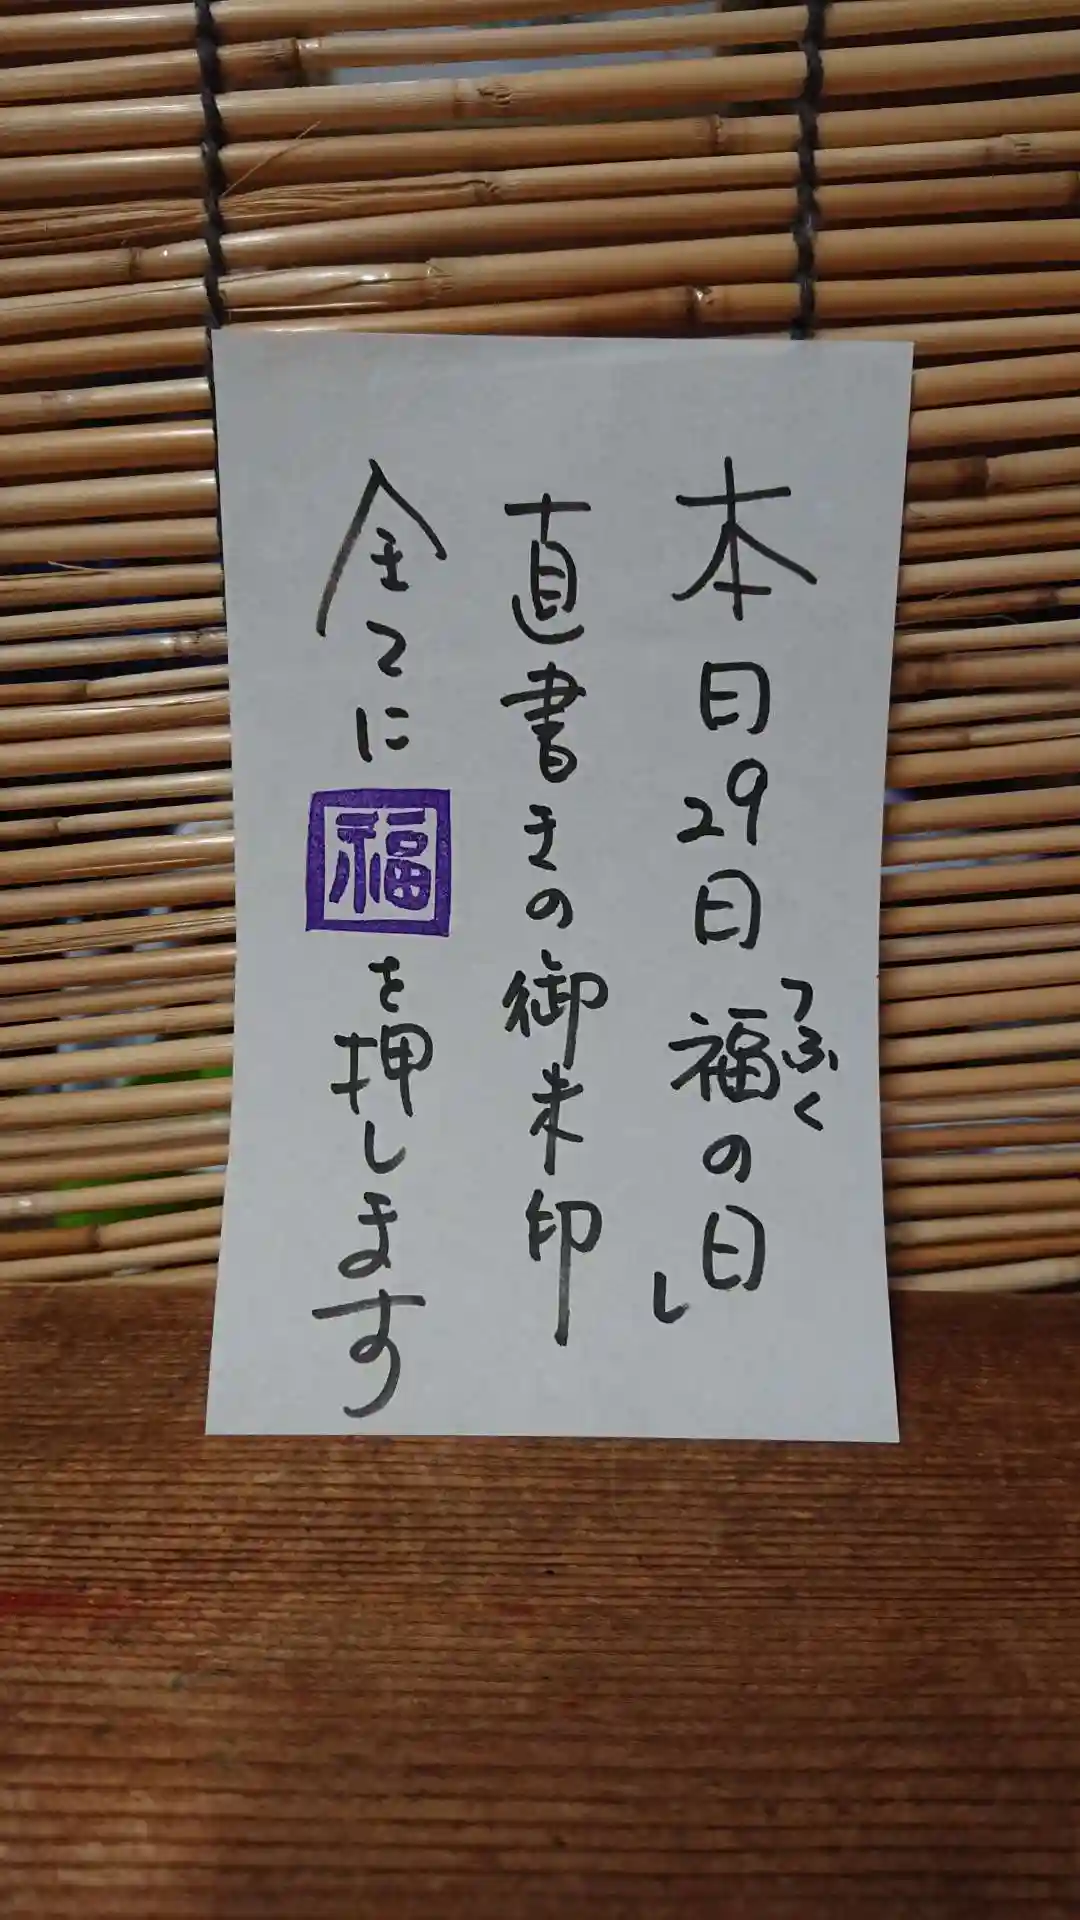 本日29日「福の日」
ふく
直書きの御朱印
全てに福を押します